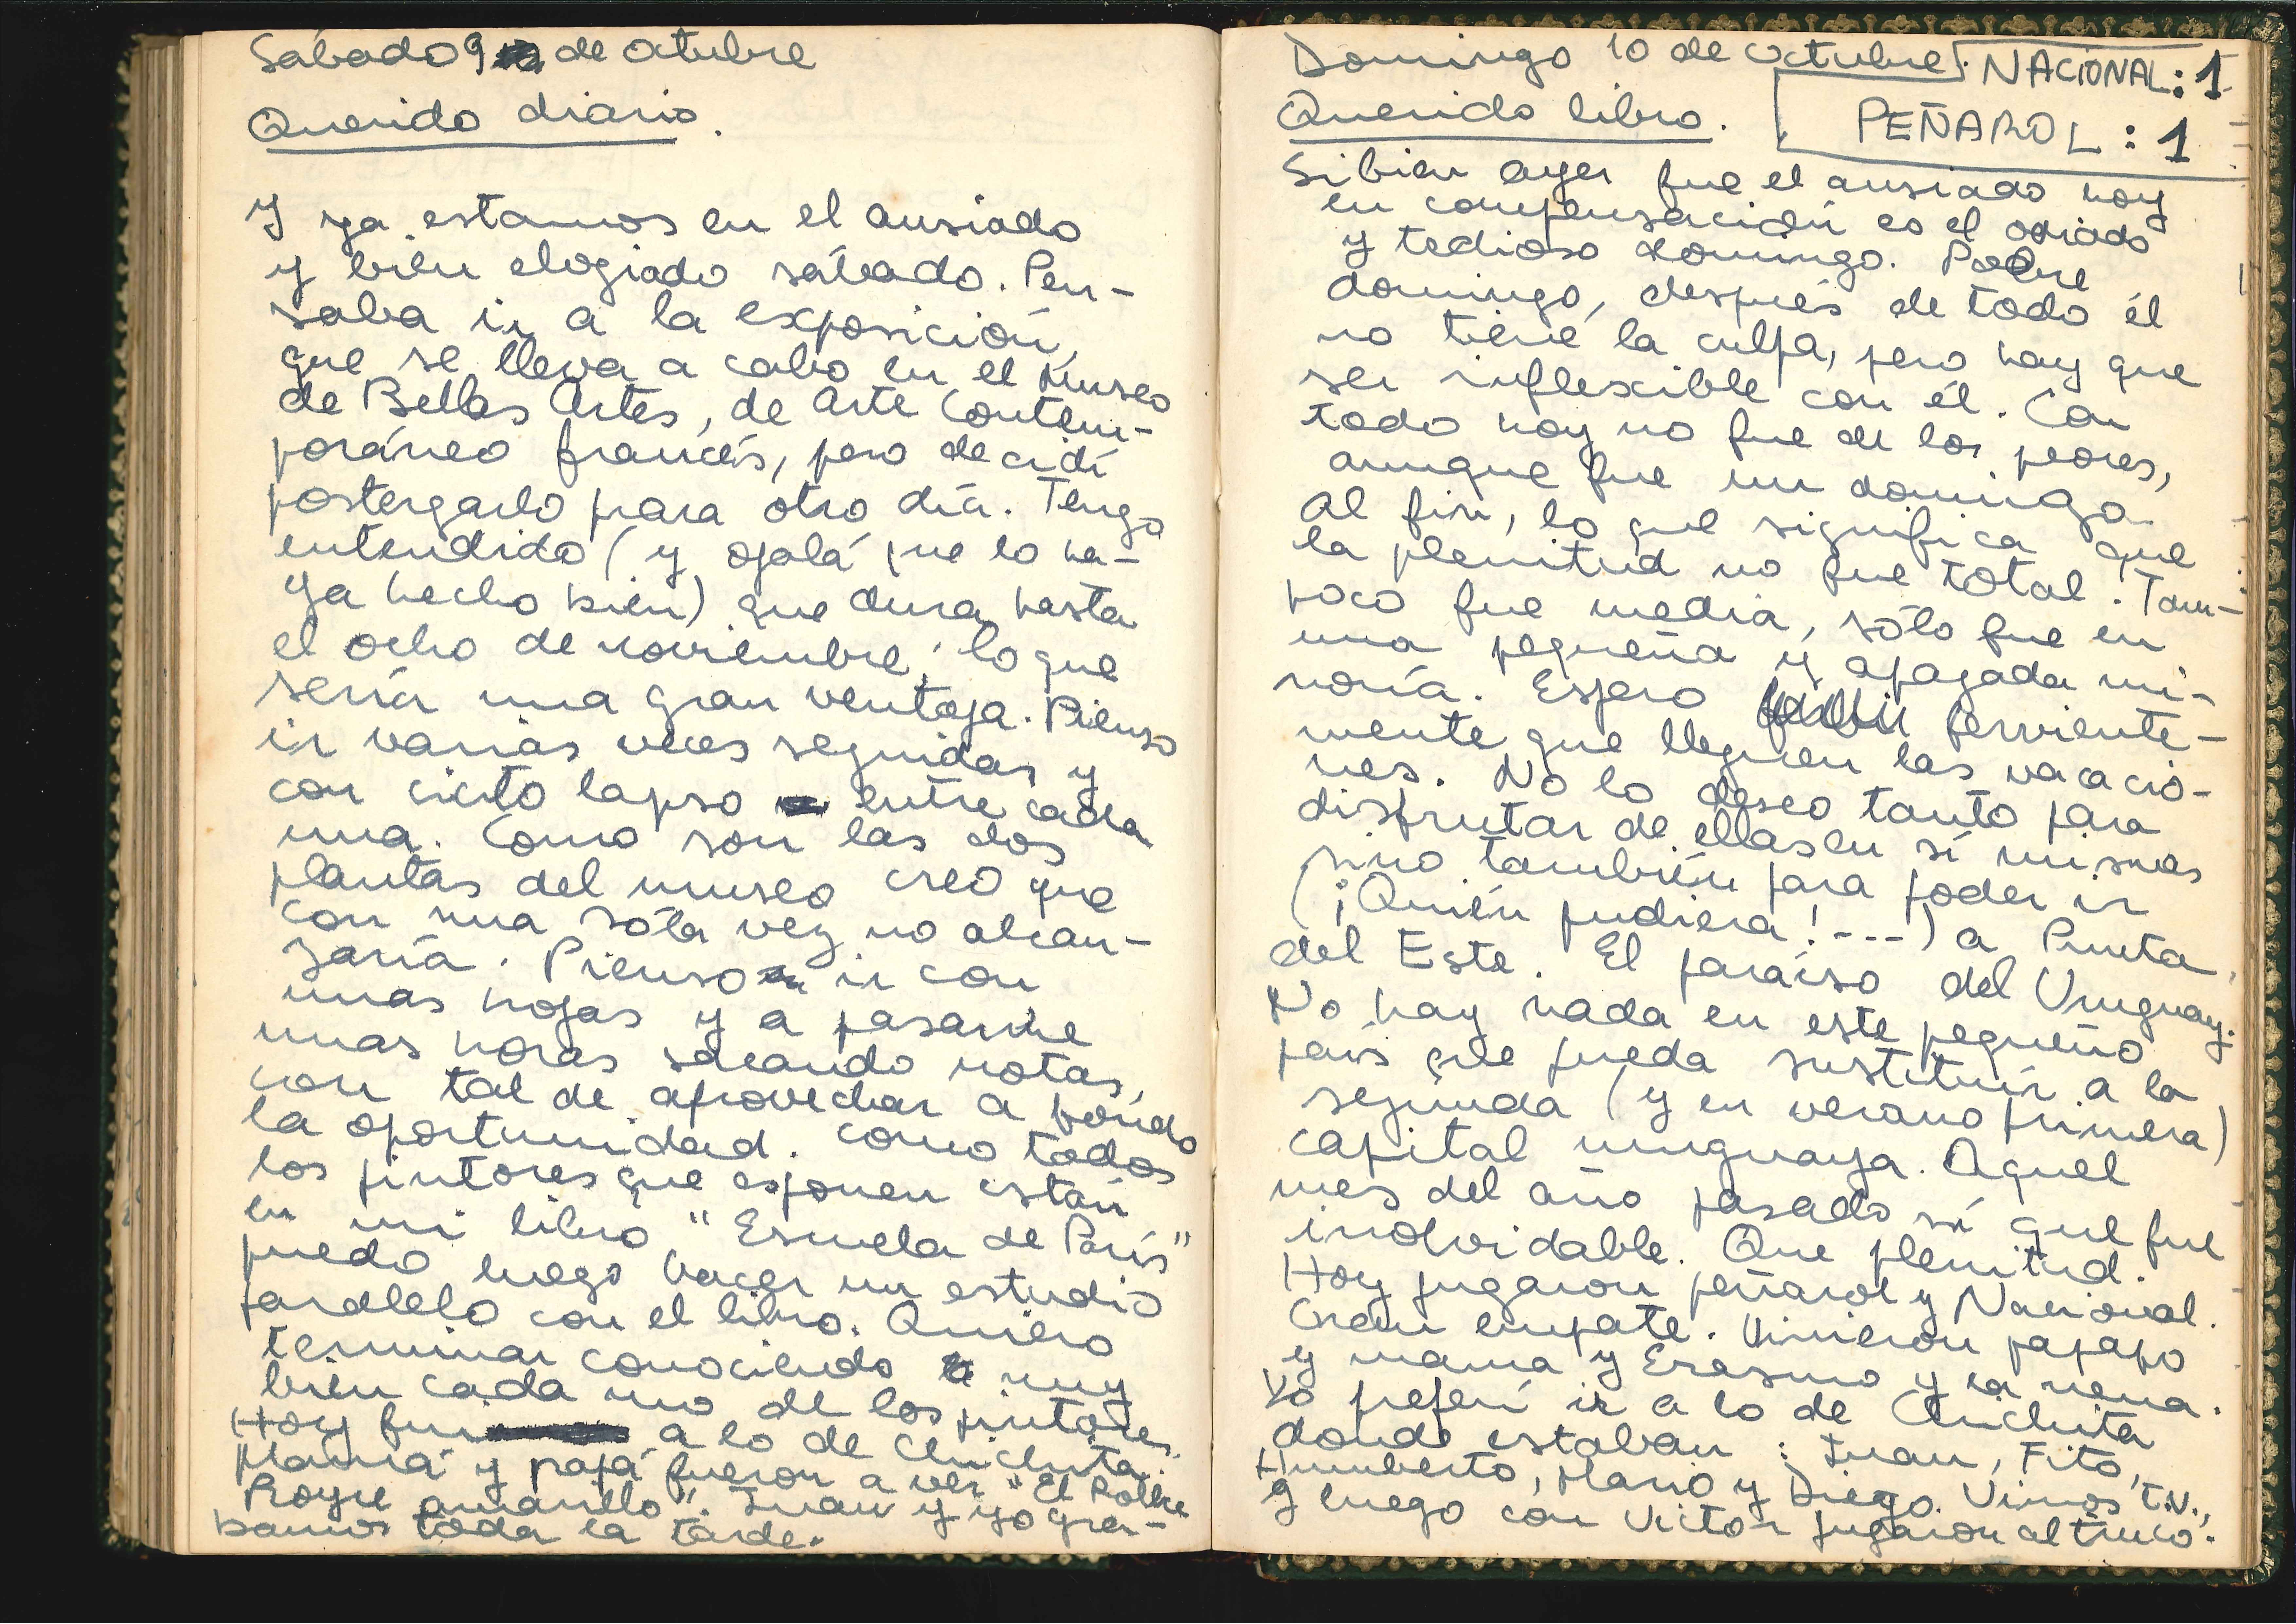 Sábado 9 de octubre
Querido diario.
Y ya estamos en el ansiado
y bien elogiado sábado. Pen-
saba ir a la exposición,
que se lleva a cabo en el Museo
de Bellas Artes, de Arte Contem-
poráneo francés, pero decidí
postergarlo para otro día. Tengo
entendido (y ojalá que lo ha-
ya hecho bien) que dura hasta
el ocho de noviembre, lo que
sería una gran ventaja. Pienso
ir varias veces seguidas y
con cierto lapso entre cada
una. Como son las dos
plantas del museo creo que
con una sóla vez no alcan-
saría. Pienso ir con
unas hojas y a pasarme
unas horas sacando notas,
con tal de aprovechar a fondo
la oportunidad. Como todos
los pintores que esponen están
en mi libro "Escuela de París"
puedo luego hacer un estudio
paralelo con el libro. Quiero
terminar conociendo muy
bien cada uno de los pintores.
Hoy fui a lo de Chichita.
Mamá y papá fueron a ver "El Rolls
Royce amarillo". Juan y yo gra-
bamos toda la tarde.
Domingo 10 de octubre. NACIONAL: 1
Querido libro. PEÑAROL: 1
Si bien ayer fue el ansiado hoy
en compensación es el odiado
y tedioso domingo. Pobre
domingo, después de todo él
no tiene la culpa, pero hay que
ser inflexible con él. Con
todo hoy no fue de los peores,
aunque fue un domingo
al fin, lo que significa que
la plenitud no fue total. Tam-
poco fue media, sólo fue en
una pequeña y apagada mi-
noría. Espero ferviente-
mente que lleguen las vacacio-
nes. No lo deseo tanto para
disfrutar de ellas en sí mismas
sino también para poder ir
(¡Quién pudiera!---) a Punta
del Este. El paraíso del Uruguay.
No hay nada en este pequeño
país que pueda sustituír a la
segunda (y en verano primera)
capital uruguaya. Aquel
mes del año pasado sí que fue
inolvidable. Que plenitud.
Hoy jugaron peñarol y Nacional.
Gran empate. Vinieron papapo
y mama y Erasmo y la nena.
Yo preferí ir a lo de Chichita
donde estaban: Juan, Fito,
Humberto, Mario y Diego. Vimos T.V.,
y luego con Victor jugaron al truco.